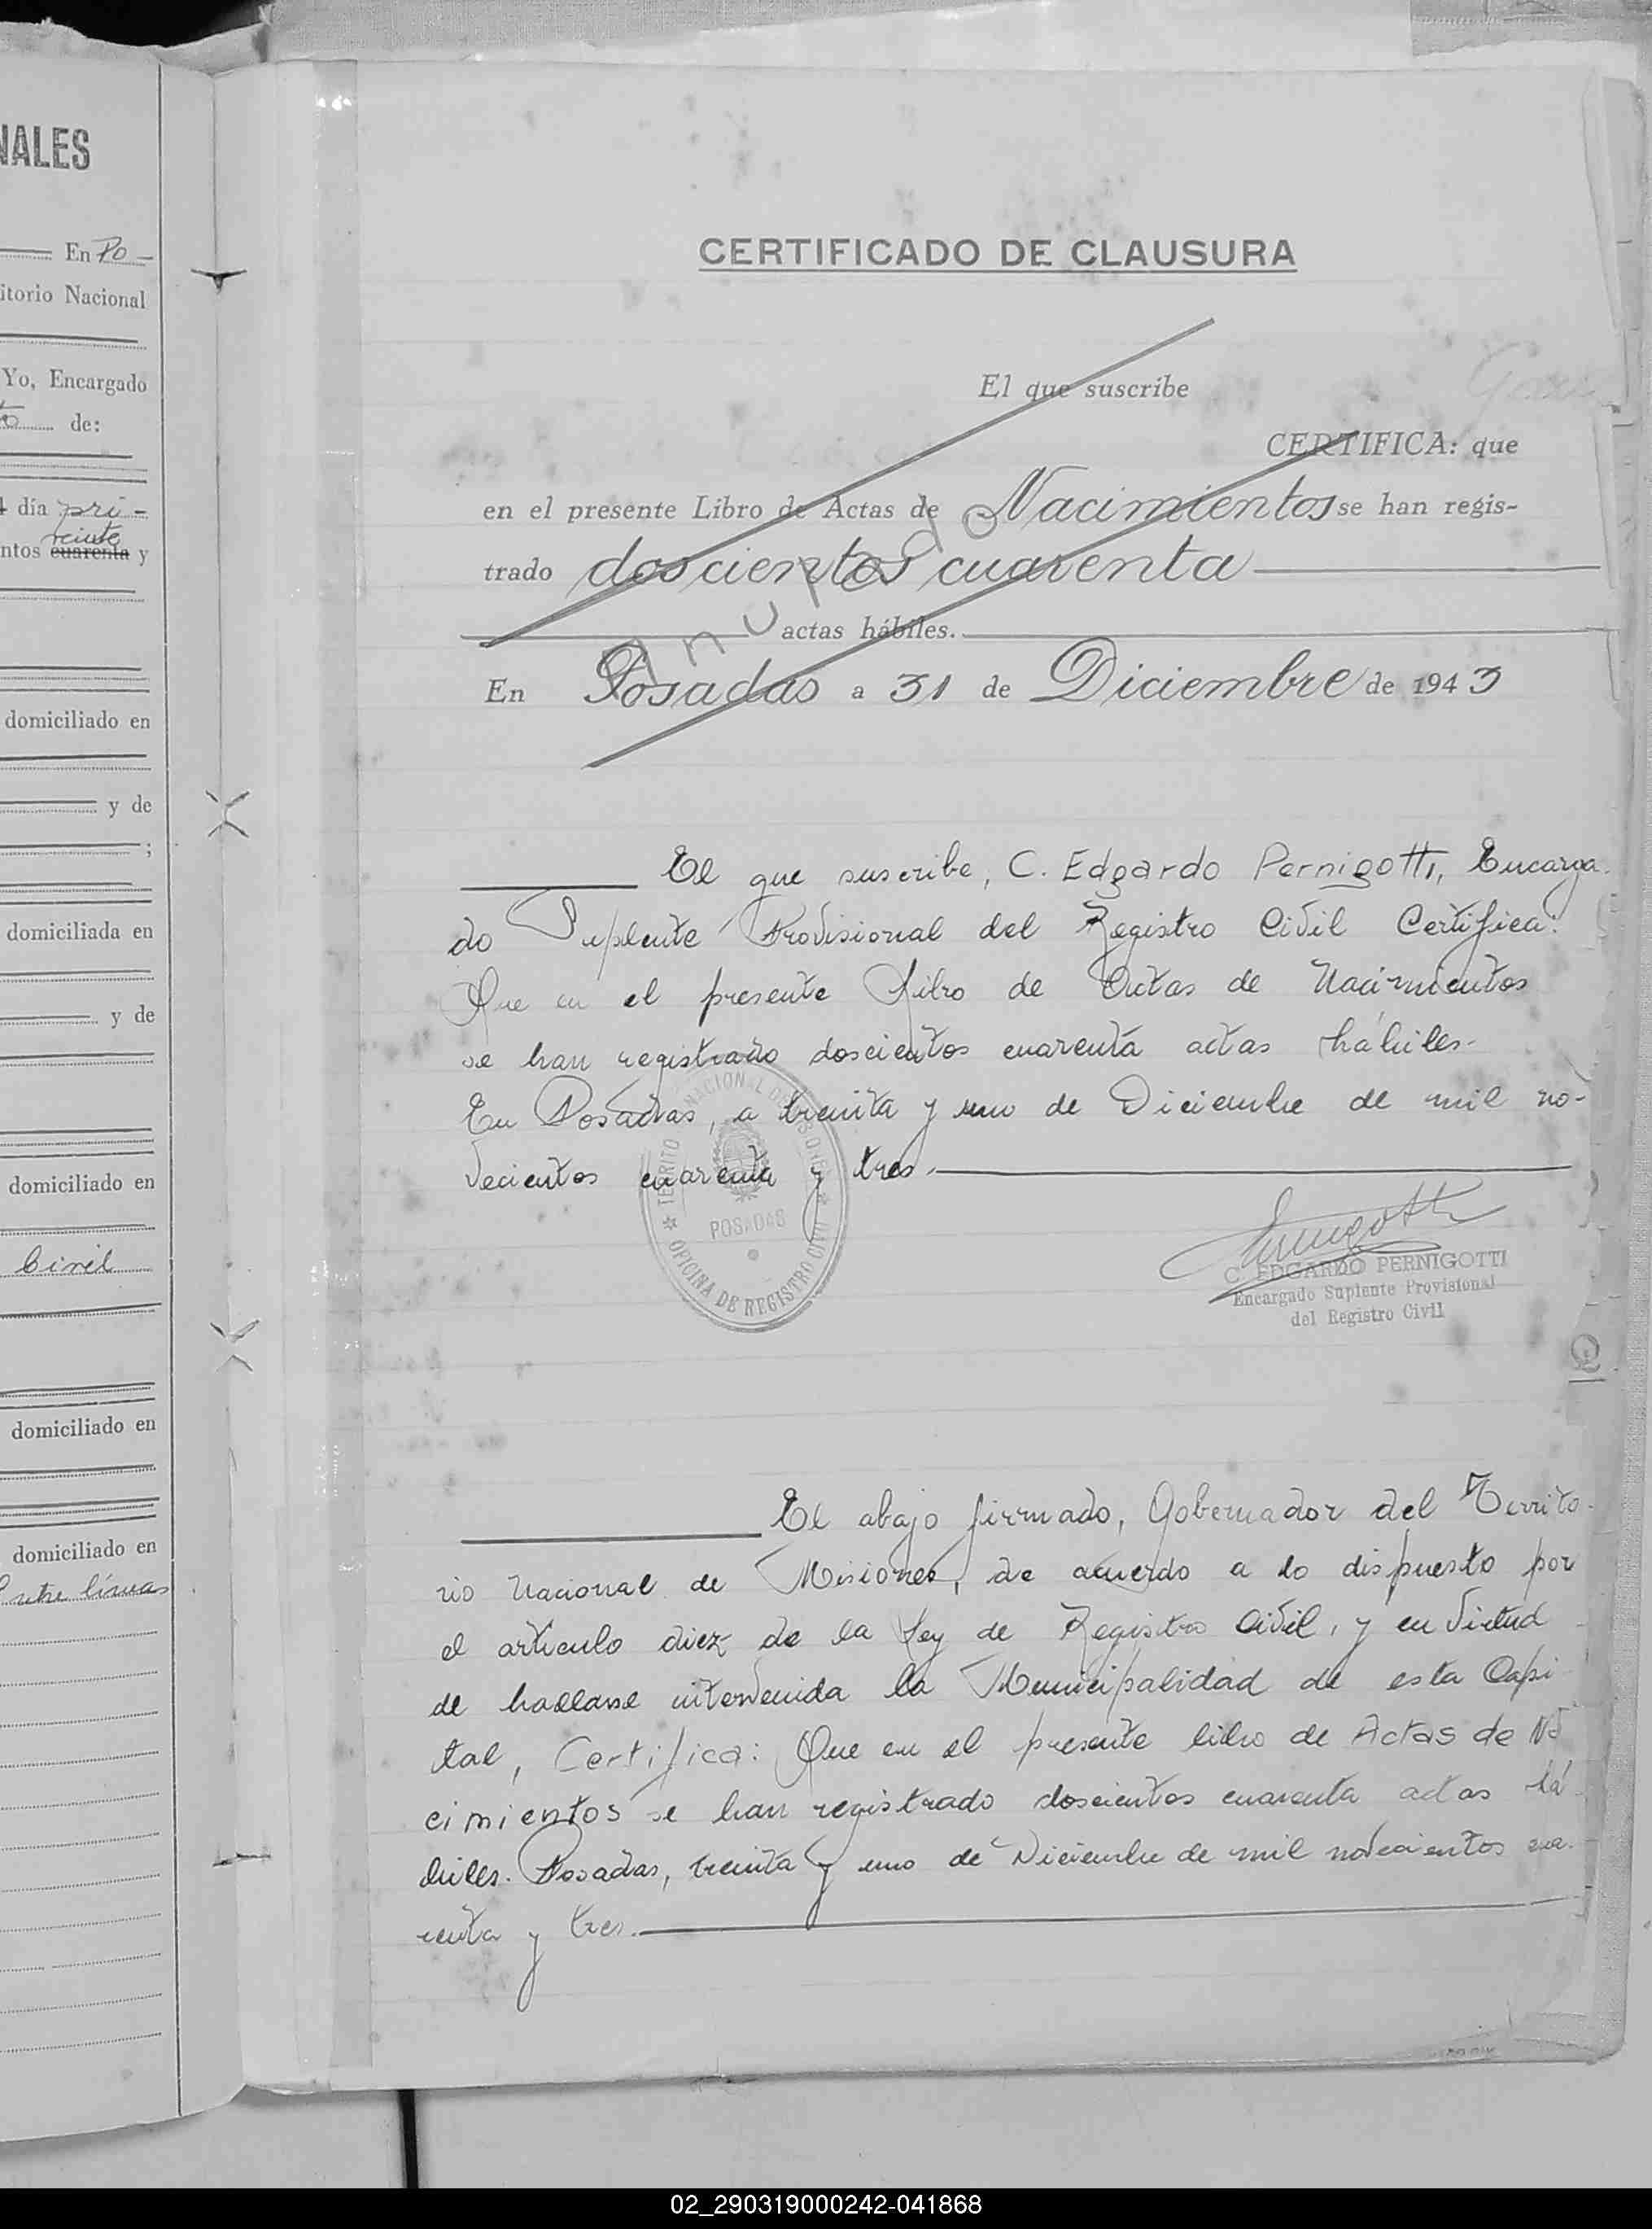 NALES
En Po-
itorio Nacional
Yo, Encargado
to de:
día pri-
veinte
ntos cuarenta y
domiciliado en
y de
;
domiciliada en
y de
domiciliado en
Civil
domiciliado en
domiciliado en
Entre líneas
CERTIFICADO DE CLAUSURA
El que suscribe
CERTIFICA: que
en el presente Libro de Actas de Nacimientos se han regis-
trado doscientos cuarenta
actas hábiles.
Anulado
En Posadas a 31 de Diciembre de 1943
El que suscribe, C. Edgardo Pernigotti, Encarga-
do Suplente Provisional del Registro Civil Certifica:
Que en el presente Libro de Actas de Nacimientos
se han registrado doscientos cuarenta actas hábiles-
En Posadas, a treinta y uno de Diciembre de mil no-
vecientos cuarenta y tres.
TERRITORIO NACIONAL DE MISIONES
POSADAS
OFICINA DE REGISTRO CIVIL
Pernigotti
C. EDGARDO PERNIGOTTI
Encargado Suplente Provisional
del Registro Civil
El abajo firmado, Gobernador del Territo-
rio Nacional de Misiones, de acuerdo a lo dispuesto por
el artículo diez de la Ley de Registro Civil, y en virtud
de hallarse intervenida la Municipalidad de esta Capi-
tal, Certifica: Que en el presente libro de Actas de Na
cimientos se han registrado doscientos cuarenta actas há-
biles. Posadas, treinta y uno de Diciembre de mil novecientos cua-
renta y tres.
02_290319000242-041868